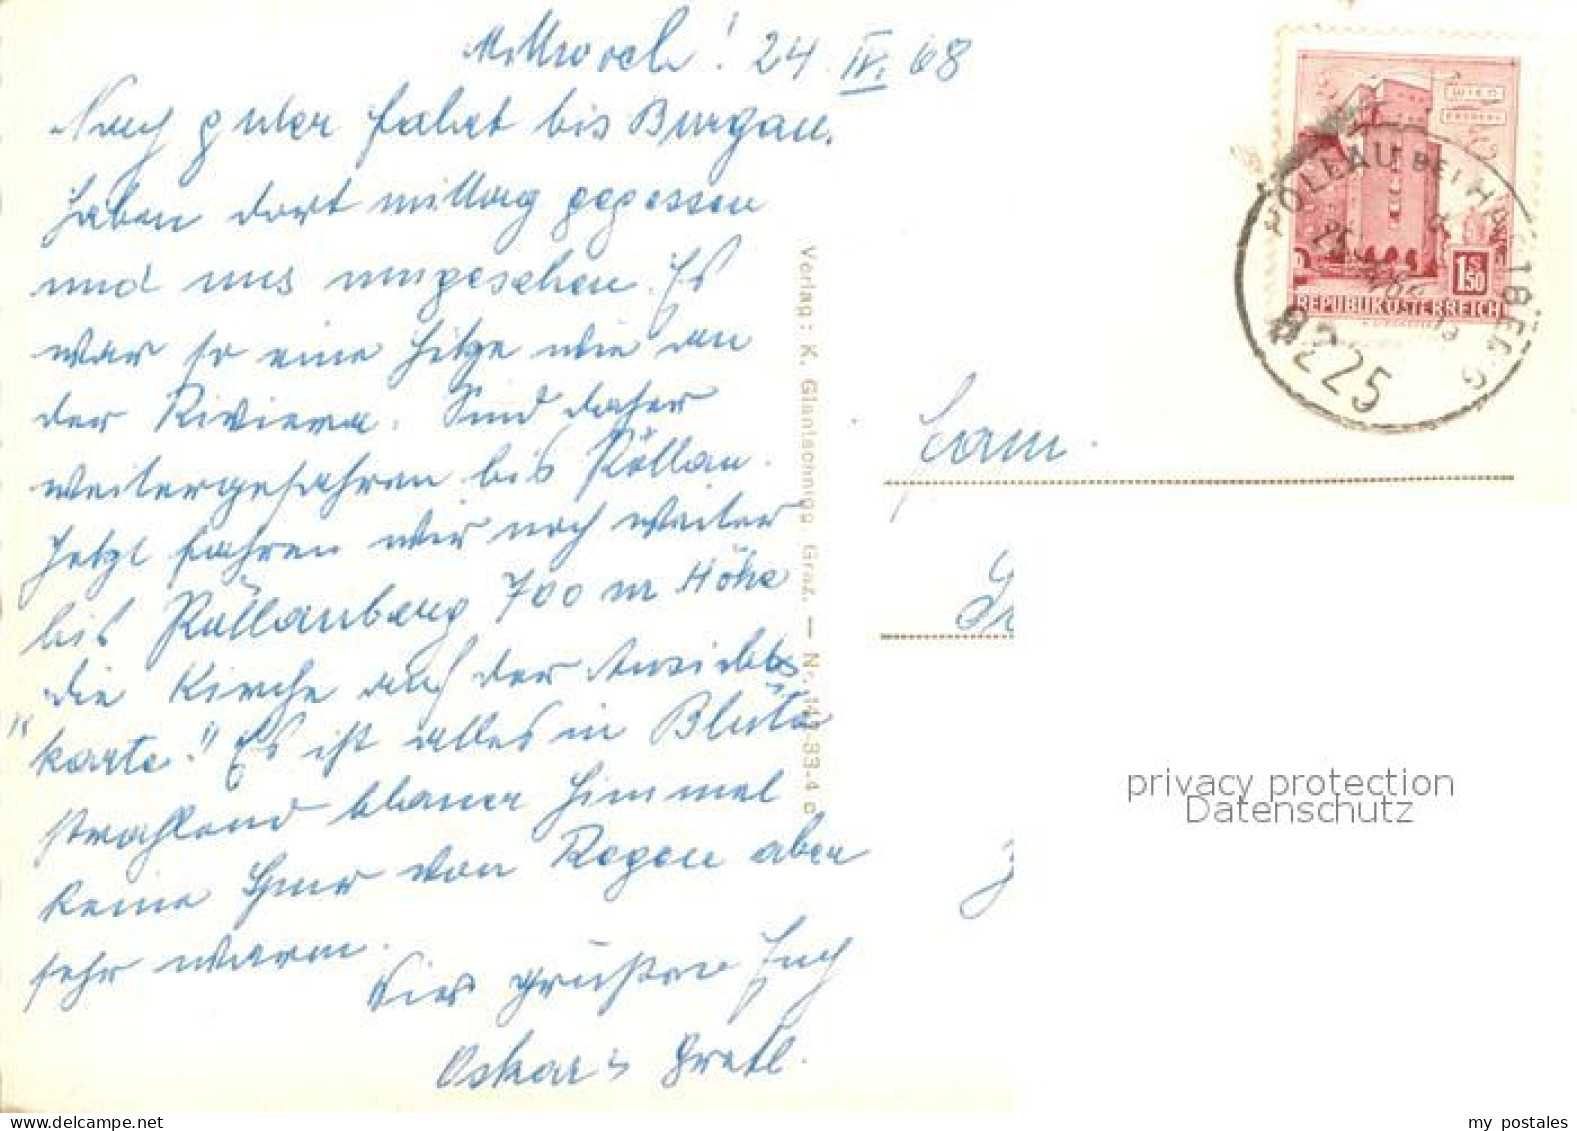 Mittwoch! 24 IV. 68
Nach guter Fahrt bis Burgau.
haben dort mittag gegessen
und uns umgesehen. Es
war so eine Hitze wie an
der Riviera. Sind daher
weitergefahren bis Pöllau.
Jetzt fahren wir noch weiter
bis Pöllauberg 700 m Höhe
die Kirche auf der Ansichts
"karte." Es ist alles in Blüte
strahlend blauer Himmel
keine Spur von Regen aber
sehr warm.
Wir grüßen Euch
Oskar u Gretl.
Verlag: K. Glantschnigg, Graz. — Nr. 143-33-4 c
WIEN
ERDBERG
S
1 50
REPUBLIK ÖSTERREICH
PÖLLAU BEI HARTBERG
8225
Fam.
privacy protection
Datenschutz
www.delcampe.net
my postales